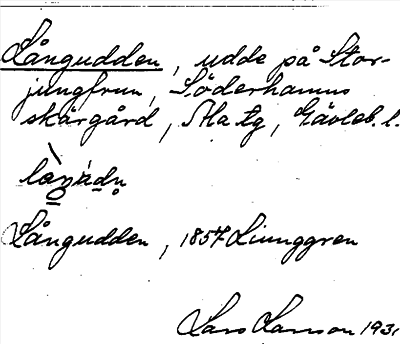 Långudden, udde på Stor-
jungfrun, Söderhamns
skärgård, Sthg, Gävleb. l.
Långudden, 1857 Ljunggren
Lars Larsson 1931